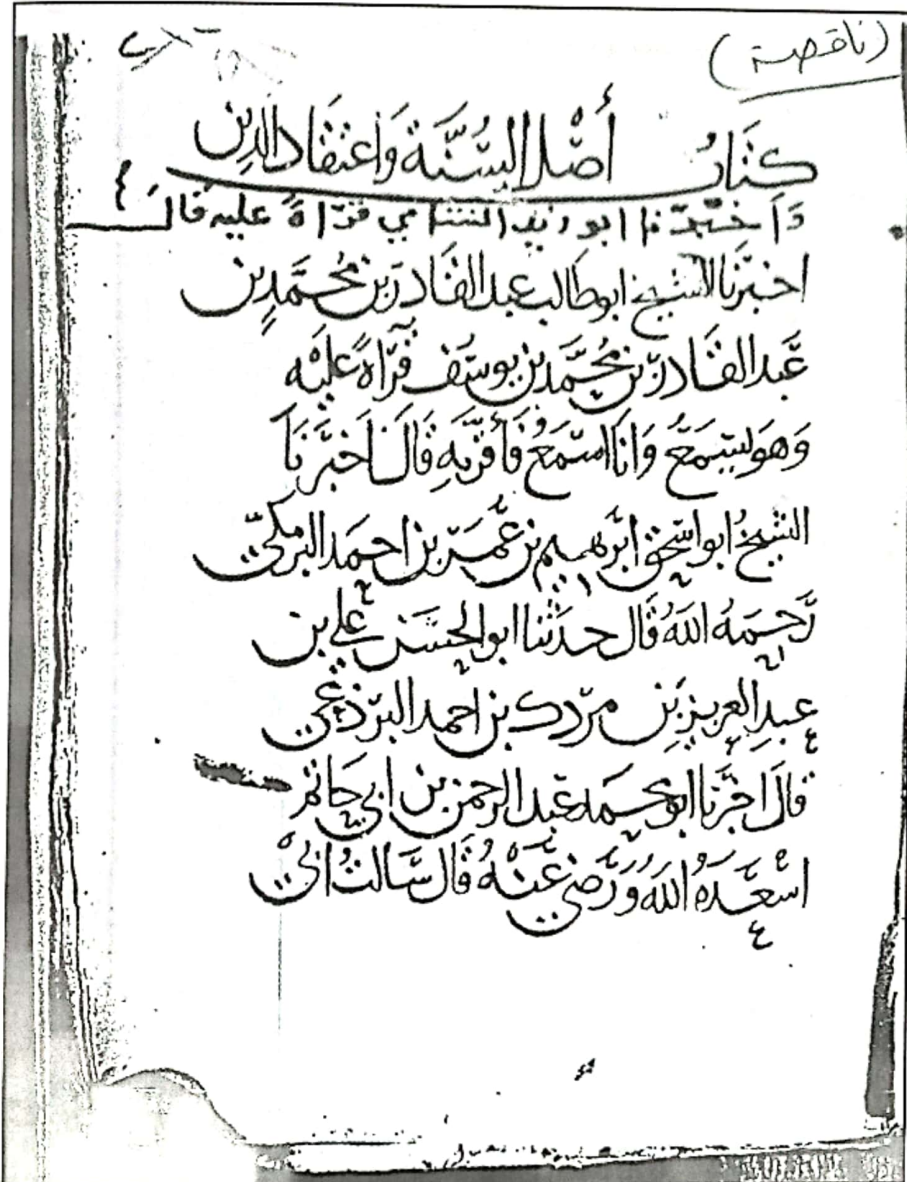 (ناقصة)
كتابُ أصْل السُّنَّة وَاعتقاد الدين
وَاَخبَرَنا ابو زيد الشامي قرْاةً عليه قال
اخبَرَنا الشيخ ابو طالب عبد القادر بن مُحَمَّدِ بن
عَبد القادر بن مُحمَّد بن يوسُف قرْآةً عليْه
وَهوَ يسمَعُ وَانا اسْمَعُ فأقرّ به قال اَخبَرنَا
الشيخُ ابو اسحٰق ابرٰهيم بن عُمَر بن احمَد البرمكيّ
رَحمَهُ اللهُ قال حدثنا ابو الحسَن علي بن
عبدِ العزيز بن مردك بن احمد البرذعي
قالَ اخبرَنا ابو محمد عبد الرحمن بن ابي حاتم
اسْعَدَهُ اللهُ وَرَضيَ عَنْهُ قال سَالتُ ابيْ